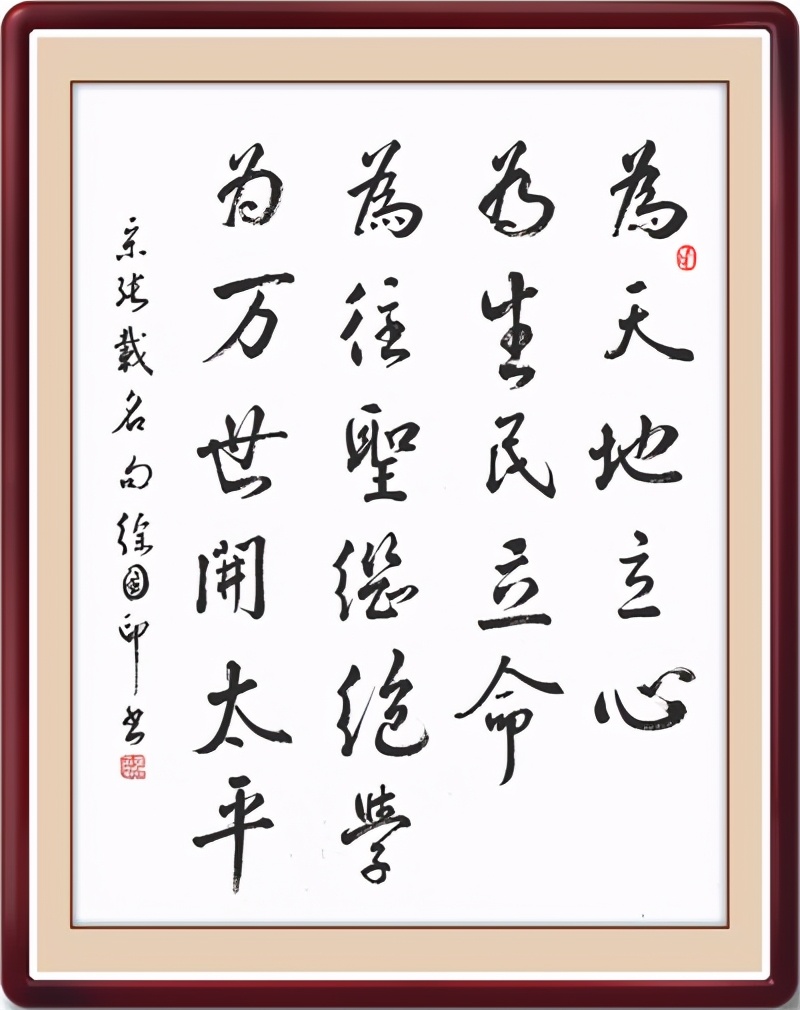 為天地立心
为生民立命
為往聖継絶學
为万世開太平
宋张載名句徐國印书